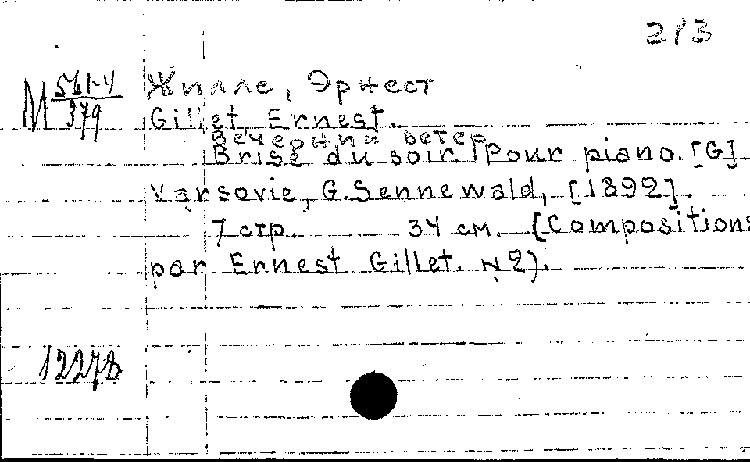 213
М 561-4/379
Жилле, Эрнест
Gillet Ernest.
Вечерний ветер
Brise du soir pour piano. [G]
Varsovie, G. Sennewald, [1892].
7 стр. 34 см. (Compositions
par Ernest Gillet. N2).
12278